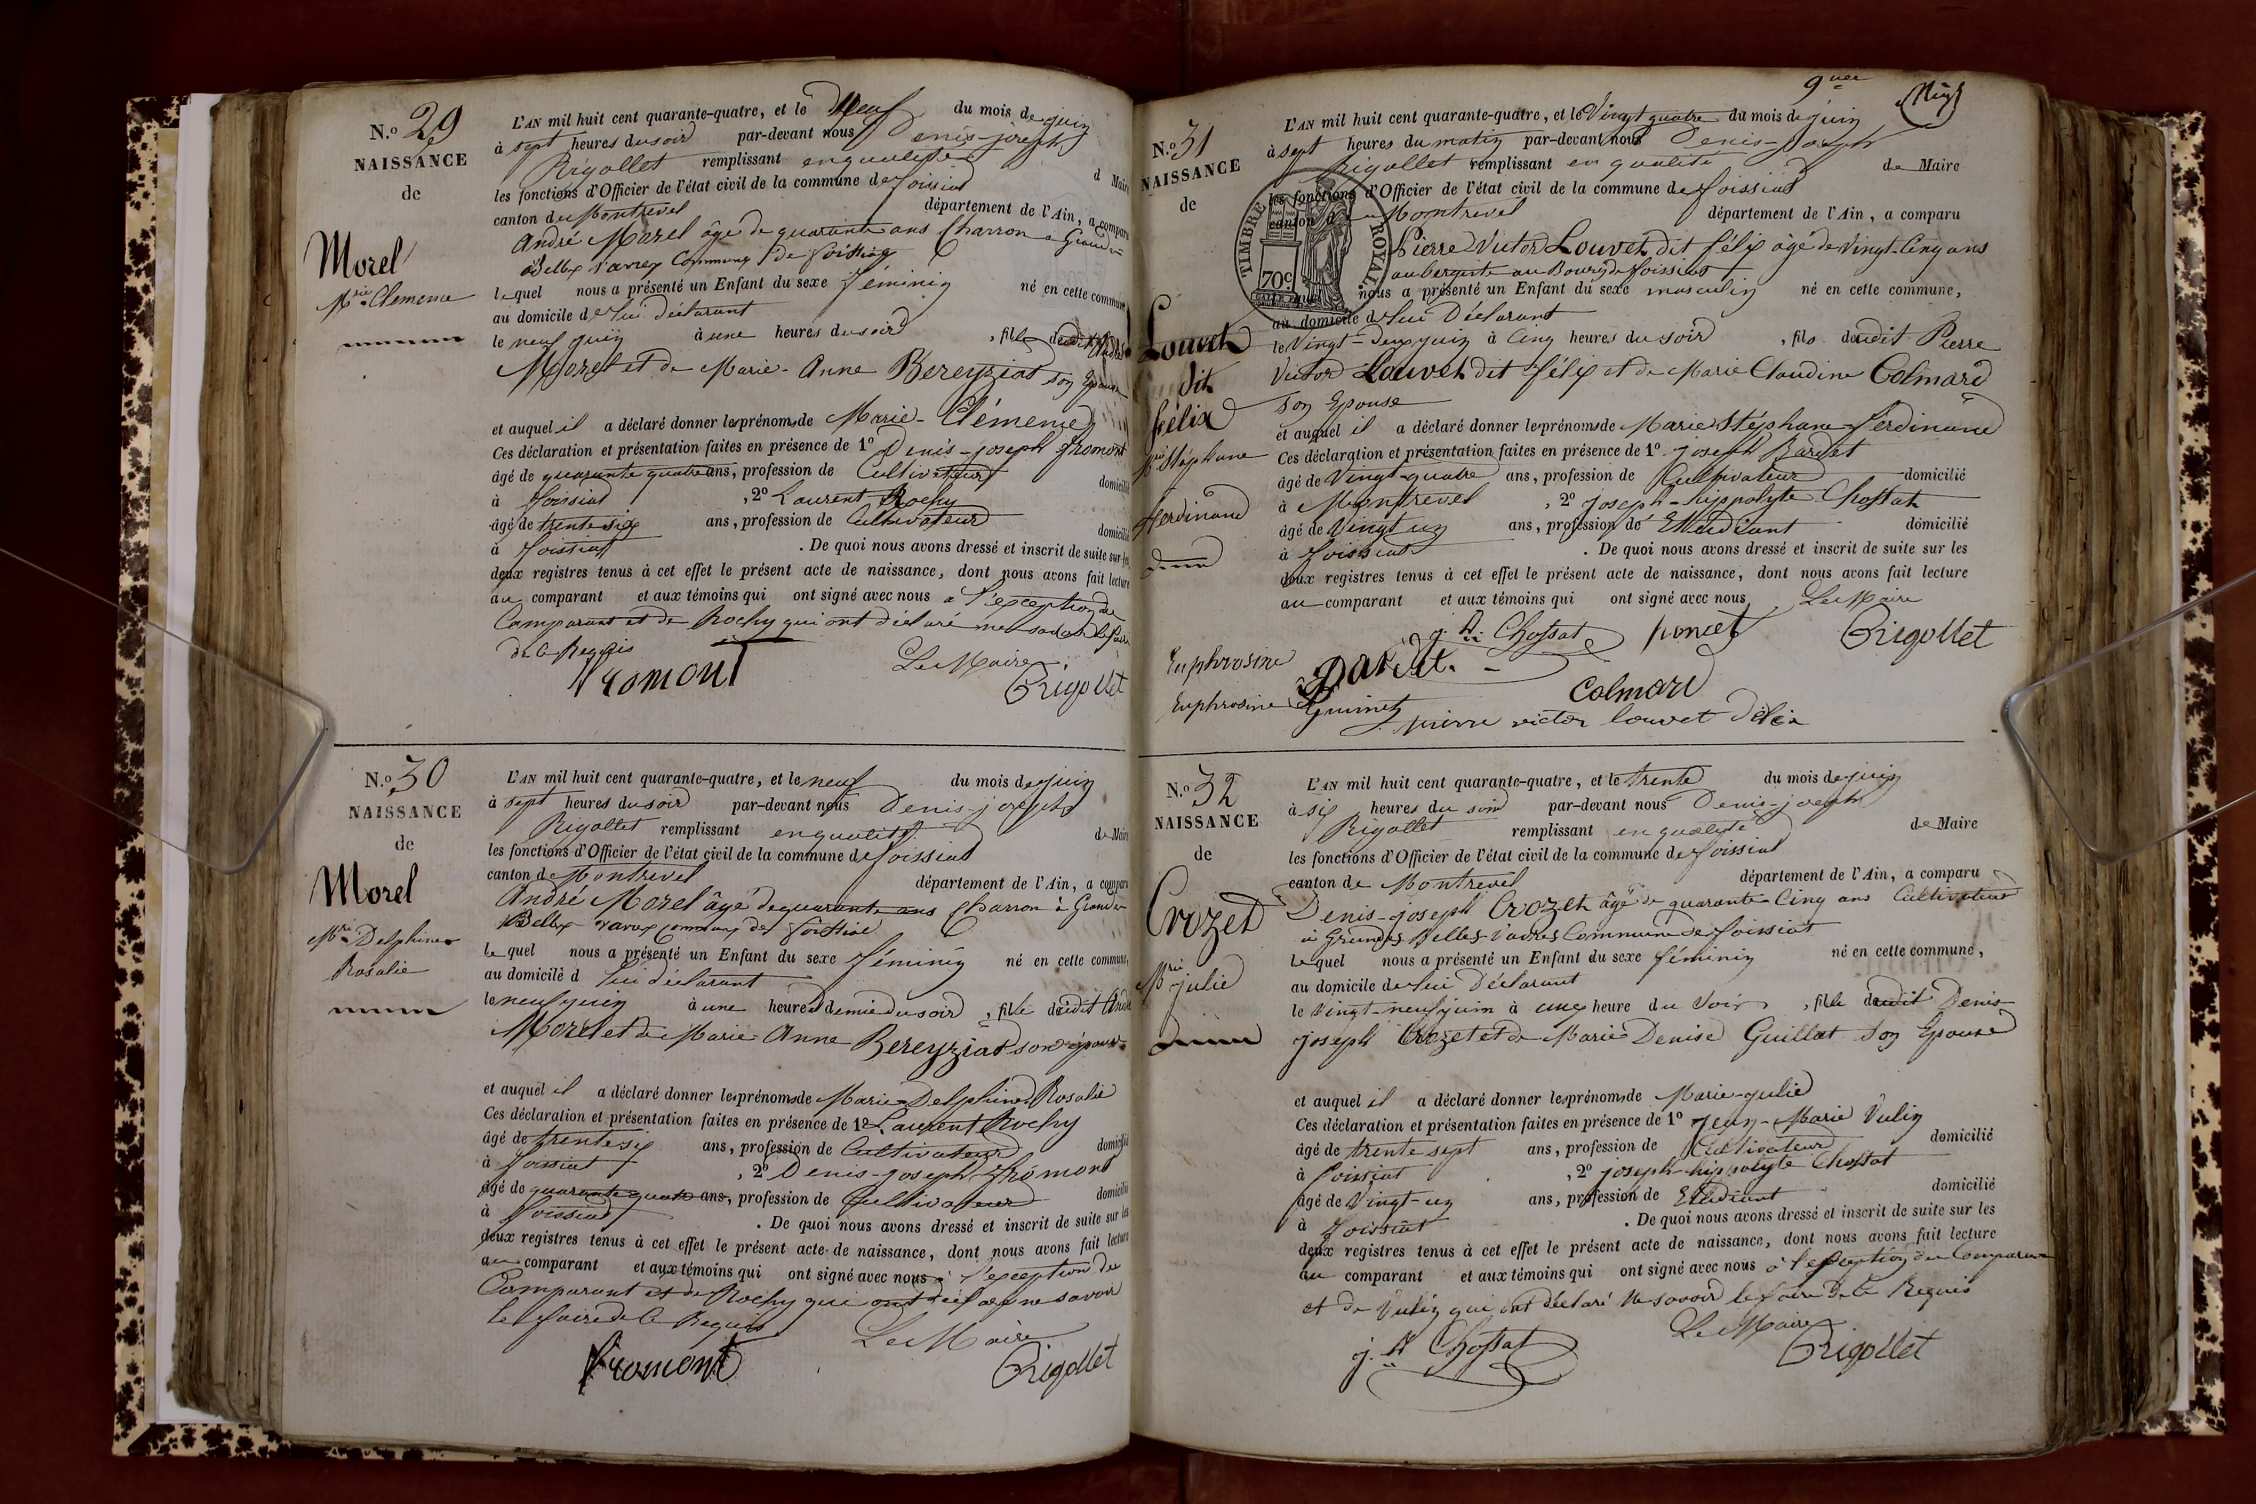 N.o 29
NAISSANCE
de
Morel
Mrie Clémence
L'AN mil huit cent quarante-quatre, et le Neuf du mois de juin
à sept heures du soir par-devant nous Denis-joseph
Rigollet remplissant en qualité d Maire
les fonctions d'Officier de l'état civil de la commune de foissiat
canton de Montrevel département de l'Ain, a comparu
André Morel âgé de quarante ans Charron à Grandes
Belles vavres Commune de foissiat
lequel nous a présenté un Enfant du sexe féminin né en cette commune
au domicile de lui déclarant
le neuf juin à une heures du soir, fille dudit André
Morel et de Marie-Anne Bereyziat son Epouse
et auquel il a déclaré donner les prénoms de Marie-Clémence
Ces déclaration et présentation faites en présence de 1o Denis-joseph fromont
âgé de quarante quatre ans, profession de Cultivateur domicilié
à foissiat, 2o Laurent Rochy
âgé de trente six ans, profession de Cultivateur domicilié
à foissiat. De quoi nous avons dressé et inscrit de suite sur les
deux registres tenus à cet effet le présent acte de naissance, dont nous avons fait lecture
au comparant et aux témoins qui ont signé avec nous à l'exception du
Comparant et de Rochy qui ont déclaré ne savoir le faire
de ce Requis
fromont
Le Maire
Rigollet
N.o 30
NAISSANCE
de
Morel
Mrie Delphine
Rosalie
L'AN mil huit cent quarante-quatre, et le neuf du mois de juin
à sept heures du soir par-devant nous Denis-joseph
Rigollet remplissant en qualité de Maire
les fonctions d'Officier de l'état civil de la commune de foissiat
canton de Montrevel département de l'Ain, a comparu
André Morel âgé de quarante ans Charron à Grandes
Belles vavres commune de foissiat
lequel nous a présenté un Enfant du sexe féminin né en cette commune,
au domicile d lui déclarant
le neuf juin à une heures demie du soir, fille dudit André
Morel et de Marie Anne Bereyziat son épouse
et auquel il a déclaré donner les prénoms de Marie Delphine Rosalie
Ces déclaration et présentation faites en présence de 1o Laurent Rochy
âgé de trente six ans, profession de Cultivateur domicilié
à foissiat, 2o Denis-joseph fromont
âgé de quarante quatre ans, profession de Cultivateur domicilié
à foissiat. De quoi nous avons dressé et inscrit de suite sur les
deux registres tenus à cet effet le présent acte de naissance, dont nous avons fait lecture
au comparant et aux témoins qui ont signé avec nous à l'exception du
Comparant et de Rochy qui ont déclaré ne savoir
le faire de ce Requis
Le Maire
fromont
Rigollet
9
N.o 31
NAISSANCE
de
Louvet
dit
félix
Stéphane
ferdinand
L'AN mil huit cent quarante-quatre, et le Vingt quatre du mois de juin
à sept heures du matin par-devant nous Denis-Joseph
Rigollet remplissant en qualité de Maire
les fonctions d'Officier de l'état civil de la commune de foissiat
canton de Montrevel département de l'Ain, a comparu
TIMBRE ROYAL
70c
Pierre Victor Louvet dit félix âgé de Vingt-Cinq ans
aubergiste au Bourg de foissiat
lequel nous a présenté un Enfant du sexe masculin né en cette commune,
au domicile de lui Déclarant
le Vingt-Deux juin à Cinq heures du soir, fils dudit Pierre
Victor Louvet dit félix et de Marie Claudine Colmard
Son Epouse
et auquel il a déclaré donner les prénoms de Marie Stéphane ferdinand
Ces déclaration et présentation faites en présence de 1o joseph Bardet
âgé de Vingt-quatre ans, profession de Cultivateur domicilié
à Montrevel, 2o joseph-hippolyte Chossat
âgé de Vingt un ans, profession de Etudiant domicilié
à foissiat. De quoi nous avons dressé et inscrit de suite sur les
deux registres tenus à cet effet le présent acte de naissance, dont nous avons fait lecture
au comparant et aux témoins qui ont signé avec nous Le Maire
j. h. Chossat poncet Rigollet
Euphrosine Bardet. Colmard
Euphrosine Guimet
pierre victor louvet dit félix
N.o 32
NAISSANCE
de
Crozet
Mrie julie
L'AN mil huit cent quarante-quatre, et le trente du mois de juin
à six heures du soir par-devant nous Denis-joseph
Rigollet remplissant en qualité de Maire
les fonctions d'Officier de l'état civil de la commune de foissiat
canton de Montrevel département de l'Ain, a comparu
Denis-joseph Crozet âgé de quarante-Cinq ans Cultivateur
à Grandes Belles vavres Commune de foissiat
lequel nous a présenté un Enfant du sexe féminin né en cette commune,
au domicile de lui Déclarant
le Vingt-neuf juin à une heure du soir, fille dudit Denis
joseph Crozet et de Marie Denise Guillat Son Epouse
et auquel il a déclaré donner les prénoms de Marie-julie
Ces déclaration et présentation faites en présence de 1o Jean-Marie Vulin
âgé de trente sept ans, profession de Cultivateur domicilié
à foissiat, 2o joseph-hippolyte Chossat
âgé de Vingt-un ans, profession de Etudiant domicilié
à foissiat. De quoi nous avons dressé et inscrit de suite sur les
deux registres tenus à cet effet le présent acte de naissance, dont nous avons fait lecture
au comparant et aux témoins qui ont signé avec nous à l'exception du Comparant
et de Vulin qui ont déclaré ne savoir le faire De ce Requis
Le Maire
j. h. Chossat
Rigollet